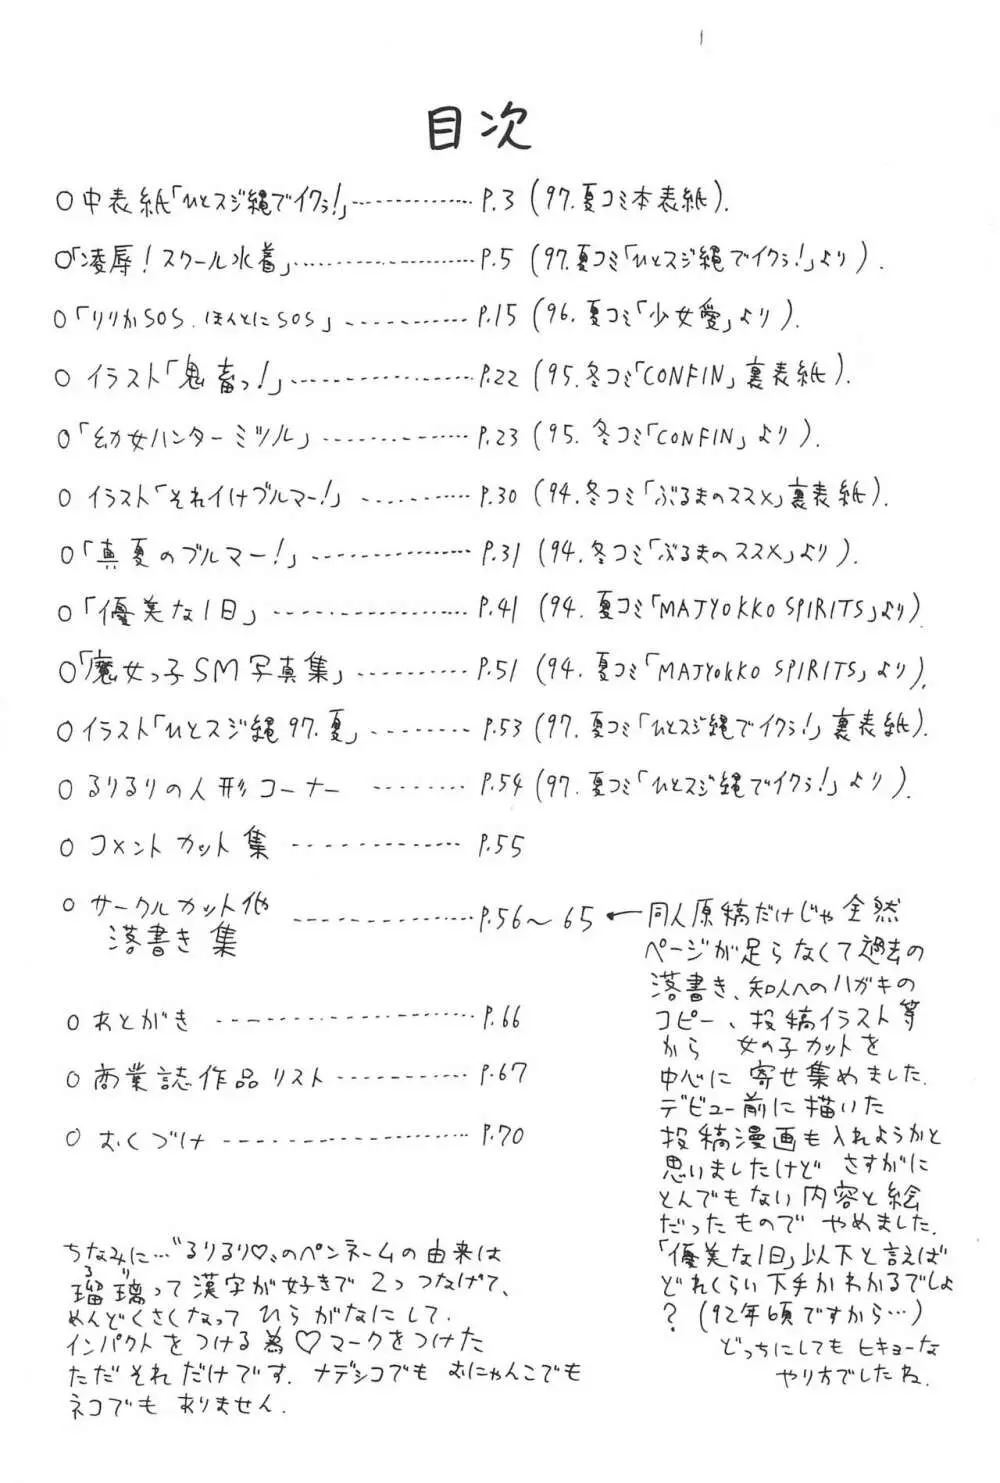 目次
○中表紙「ひとスジ縄でイクぅ!」------------- P.3 (97.夏コミ本表紙).
○「凌辱!スクール水着」------------- P.5 (97.夏コミ「ひとスジ縄でイクぅ!」より).
○「りりかSOS.ほんとにSOS」------------- P.15 (96.夏コミ「少女愛」より).
○ イラスト「鬼畜っ!」------------- P.22 (95.冬コミ「CONFIN」裏表紙).
○「幼女ハンターミツル」------------- P.23 (95.冬コミ「CONFIN」より).
○ イラスト「それイけブルマー!」------------- P.30 (94.冬コミ「ぶるまのススメ」裏表紙).
○「真夏のブルマー!」------------- P.31 (94.冬コミ「ぶるまのススメ」より).
○「優美な1日」------------- P.41 (94.夏コミ「MAJYOKKO SPIRITS」より)
○「魔女っ子SM写真集」------------- P.51 (94.夏コミ「MAJYOKKO SPIRITS」より).
○イラスト「ひとスジ縄97.夏」------------- P.53 (97.夏コミ「ひとスジ縄でイクぅ!」裏表紙).
○ るりるりの人形コーナー -------- P.54 (97.夏コミ「ひとスジ縄でイクぅ!」より).
○ コメントカット集 ------------- P.55
○ サークルカット他
落書き集 ------------- P.56〜65
○ あとがき ------------- P.66
○ 商業誌作品リスト ------------- P.67
○ おくづけ ------------- P.70
←同人原稿だけじゃ全然
ページが足らなくて過去の
落書き、知人へのハガキの
コピー、投稿イラスト等
から 女の子カットを
中心に寄せ集めました.
デビュー前に描いた
投稿漫画も入れようかと
思いましたけど さすがに
とんでもない内容と絵
だったもので やめました.
「優美な1日」以下と言えば
どれくらい下手かわかるでしょ
? (92年頃ですから…)
どっちにしても ヒキョーな
やり方でしたね.
ちなみに…“るりるり♡„のペンネームの由来は
るり
瑠璃って漢字が好きで 2つつなげて、
めんどくさくなって ひらがなにして.
インパクトをつける為♡マークをつけた
ただそれだけです. ナデシコでも おにゃんこでも
ネコでも ありません.